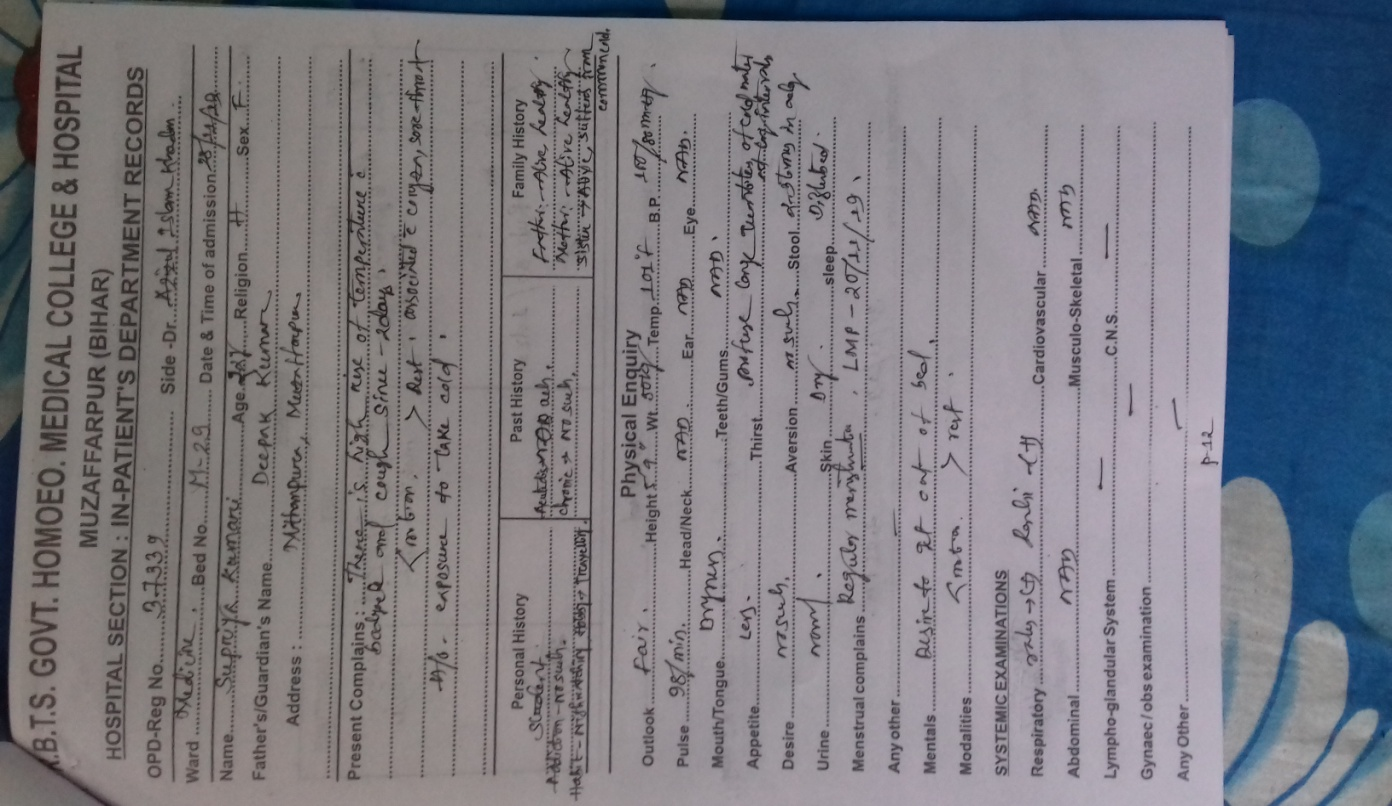 .B.T.S. GOVT. HOMOEO. MEDICAL COLLEGE & HOSPITAL
MUZAFFARPUR (BIHAR)
HOSPITAL SECTION : IN-PATIENT'S DEPARTMENT RECORDS
OPD-Reg No. 37339 Side -Dr. Islam
Ward Medicine. Bed No. M-29 Date & Time of admission
Name Supriya Kumari Age Religion H Sex F
Father's/Guardian's Name Deepak Kumar
Address : Mithanpura,
Present Complains : There is high rise of temperature c̄
bodyache and cough since - 2days.
< motion. > Rest. associated c̄ coryza, sore-throat
H/o. exposure to take cold.
Personal History Past History Family History
Student Father - Alive healthy.
Addiction - no such. Chronic → No such. Mother - Alive healthy
Sister → Alive, suffers from
common cold.
Physical Enquiry
Outlook Fair. Height 5'9" Wt. Temp. 101°F B.P.
Pulse 98/min. Head/Neck NAD Ear NAD Eye NAD.
Mouth/Tongue Teeth/Gums NAD.
Appetite Less. Thirst profuse large quantities of cold water
at long intervals
Desire no such. Aversion no such. Stool
Urine normal. Skin Dry. sleep Disturbed.
Menstrual complains Regular menstruation, LMP - 20/11/19.
Any other
Mentals Desire to get out of bed.
Modalities < motion > rest.
SYSTEMIC EXAMINATIONS
Respiratory Cardiovascular NAD
Abdominal NAD Musculo-Skeletal NAD
Lympho-glandular System — C.N.S. —
Gynaec / obs examination —
Any Other —
P-12